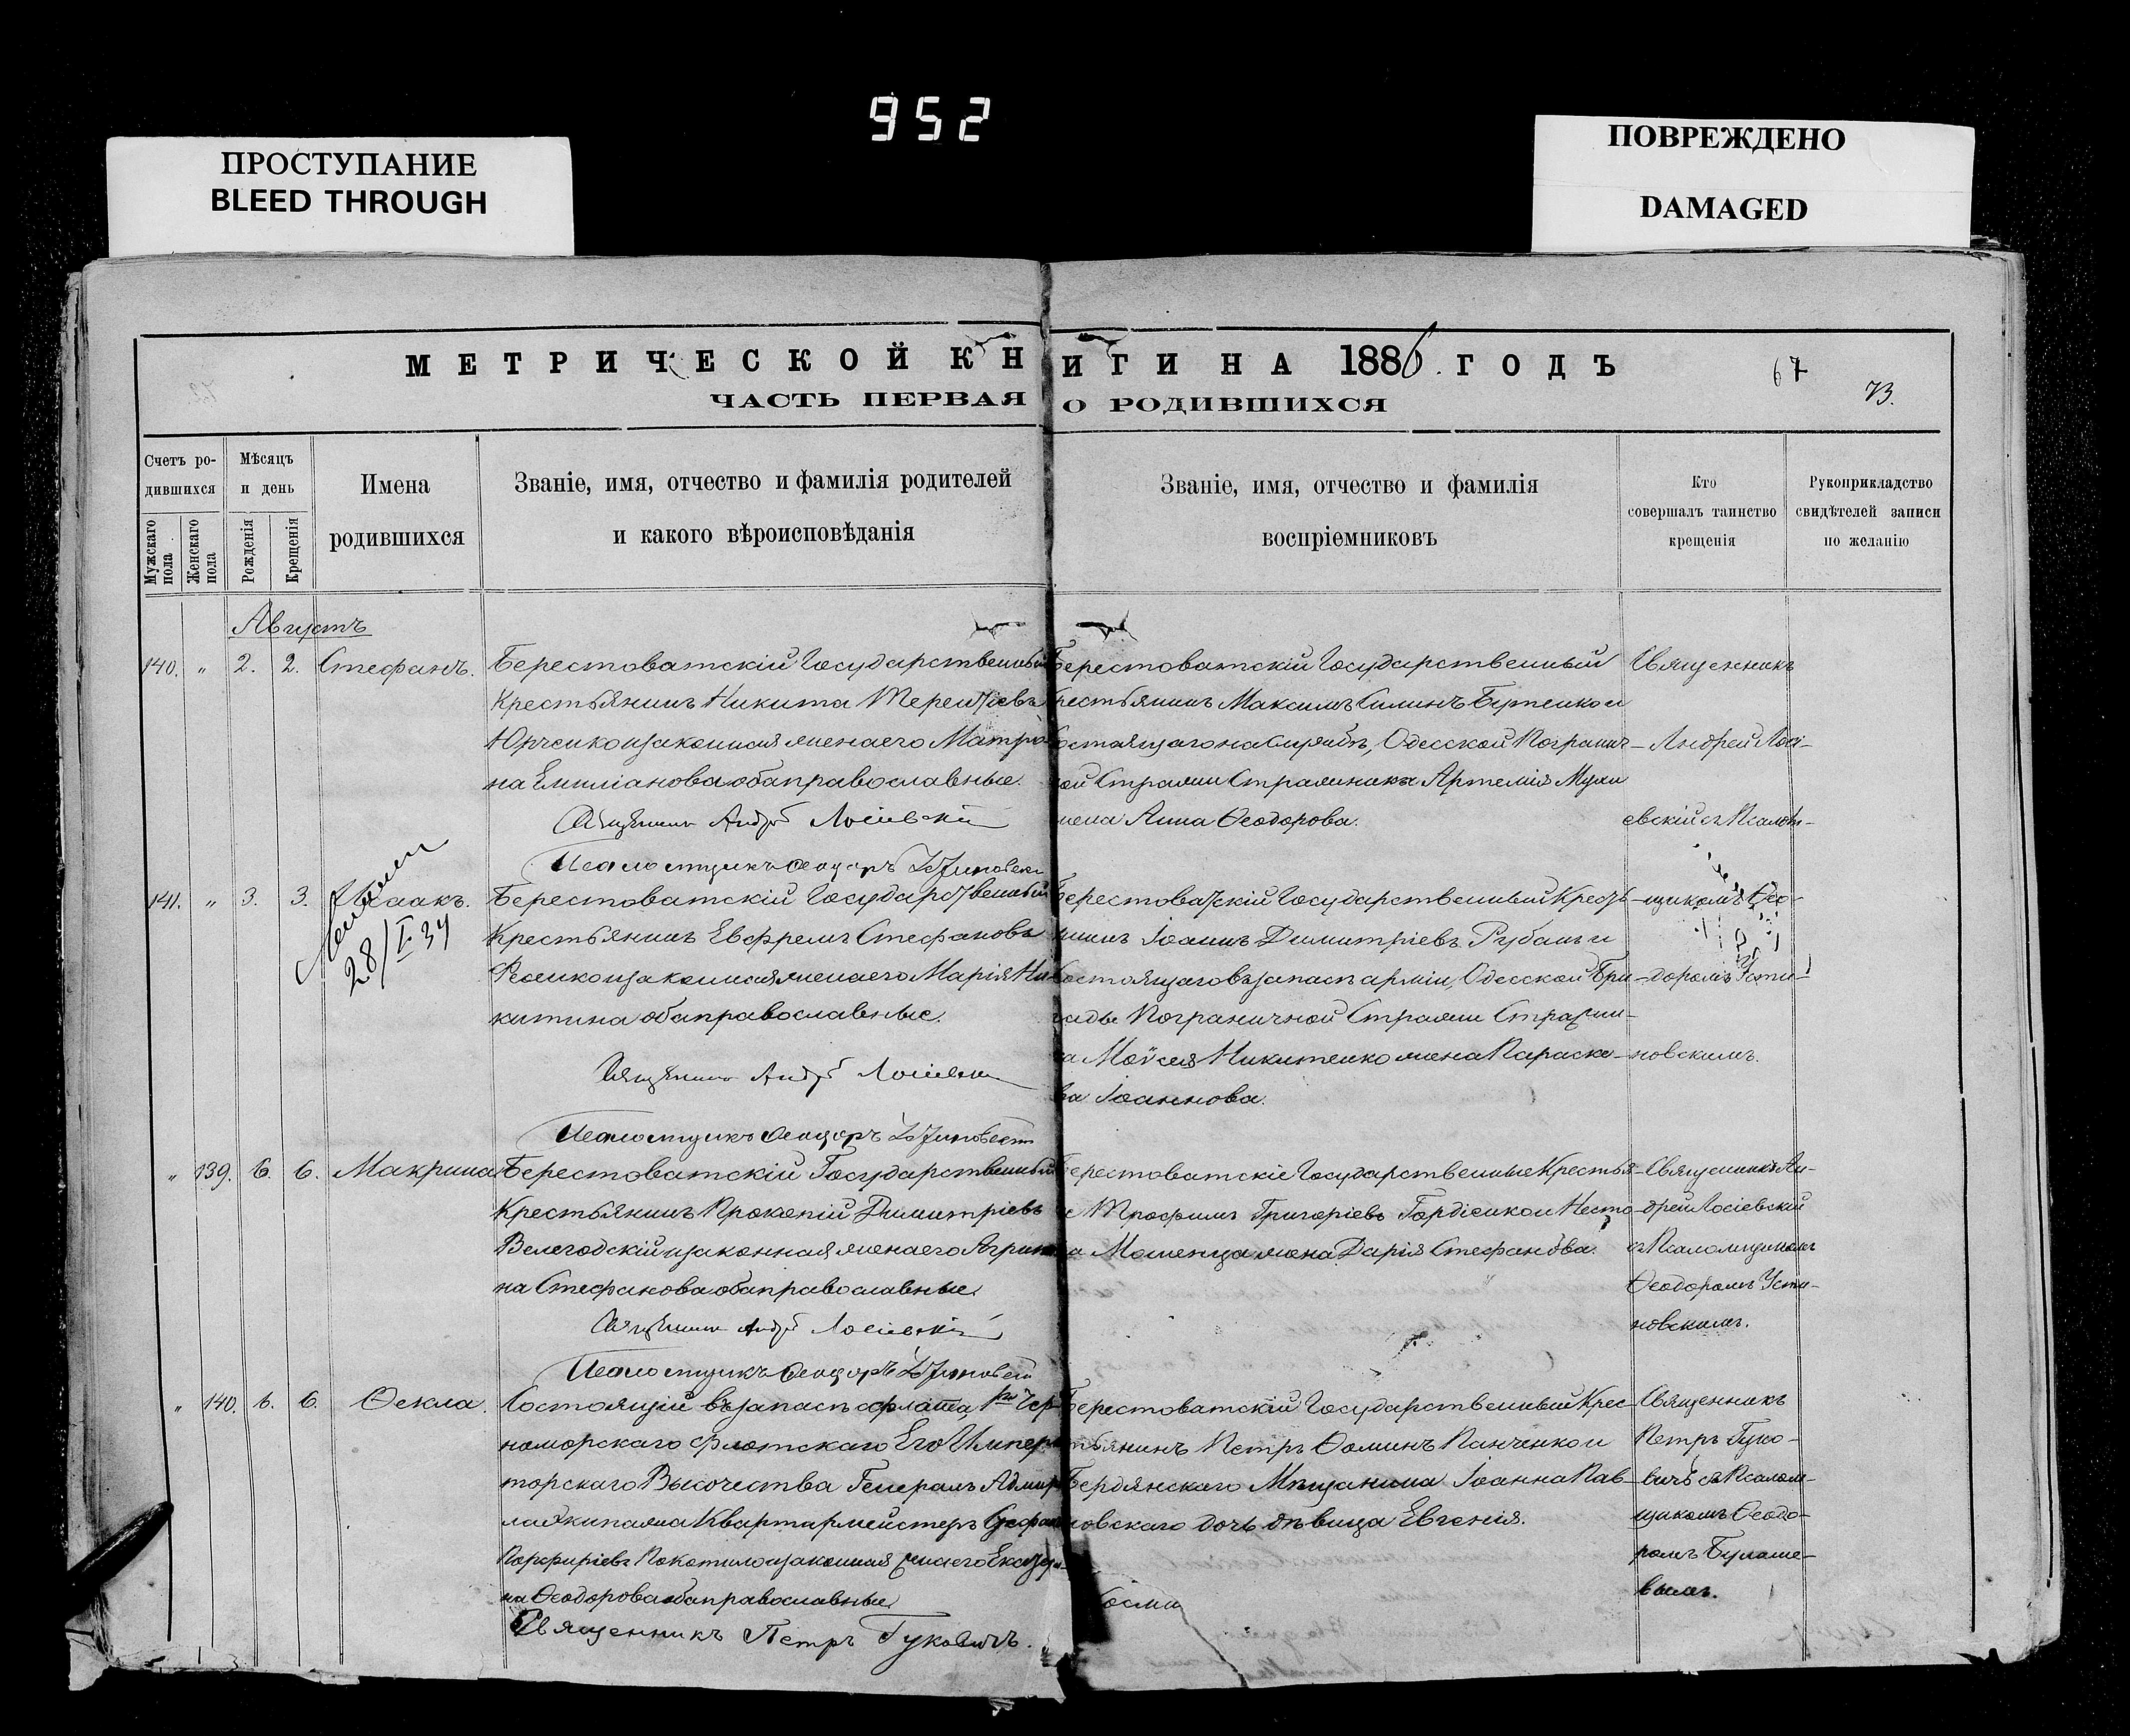 952
ПРОСТУПАНИЕ
BLEED THROUGH
ПОВРЕЖДЕНО
DAMAGED
МЕТРИЧЕСКОЙ КНИГИ НА 1886 ГОДЪ
67
73.
ЧАСТЬ ПЕРВАЯ О РОДИВШИХСЯ
Счетъ родившихся
Мужскаго пола
Женскаго пола
Мѣсяцъ и день
Рожденія
Крещенія
Имена
родившихся
Званіе, имя, отчество и фамилія родителей
и какого вѣроисповѣданія
Званіе, имя, отчество и фамилія
воспріемниковъ
Кто
совершалъ таинство
крещенія
Рукоприкладство
свидѣтелей записи
по желанію
Августъ
140. " 2. 2. Стефанъ.
Берестоватскій Государственный
Крестьянинъ Никита Терентіевъ
Юрченко и законная жена его Матро-
на Емиліанова оба православные.
Священникъ Андрей Лосіевскій
Псаломщикъ Ѳеодоръ Устиновскій
Берестоватскій Государственный
Крестьянинъ Максимъ Силинъ Бутенко и
состоящаго на службѣ, Одесской Погранич-
ной Стражи Стражника Артемія
жена Анна Ѳеодорова.
Священникъ
Андрей Лосі-
евскій съ Псалом-
141. " 3. 3. Исаакъ.
28/I 34
Берестоватскій Государственный
Крестьянинъ Евфремъ Стефановъ
и законная жена его Марія Ни-
китина оба православные.
Священникъ Андрей Лосіевскій
Псаломщикъ Ѳеодоръ Устиновскій
Берестоватскій Государственный Кресть-
янинъ Іоаннъ Димитріевъ Рубанъ и
состоящаго въ запасѣ арміи, Одесской Бри-
гады Пограничной Стражи Стражни-
ка Моѵсея Никитенко жена Параске-
ва Іоаннова.
щикомъ Ѳео-
доромъ Усти-
новскимъ.
" 139. 6. 6. Макрина
Берестоватскій Государственный
Крестьянинъ Прокопій Димитріевъ
Велегодскій и законная жена его Агрипи-
на Стефанова оба православные.
Священникъ Андрей Лосіевскій
Псаломщикъ Ѳеодоръ Устиновскій
Берестоватскіе Государственные Крестья-
не Трофимъ Григоріевъ Гордіенко и Несто-
ра Моменца жена Дарія Стефанова.
Священникъ Ан-
дрей Лосіевскій
съ Псаломщикомъ
Ѳеодоромъ Усти-
новскимъ.
" 140. 6. 6. Ѳекла.
Состоящій въ запасѣ флота, 1го Чер-
номорскаго флотскаго Его Импера-
торскаго Высочества Генералъ Адмира-
ла экипажа Квартирмейстеръ Стефанъ
Порфиріевъ Покотило и законная жена его Екатери-
на Ѳеодорова оба православные.
Священникъ Петръ Гуковичъ.
Берестоватскій Государственный Крес-
тьянинъ Петръ Ѳоминъ Панченко и
Бердянскаго Мѣщанина Іоанна Пав-
ловскаго дочь дѣвица Евгенія.
Священникъ
Петръ Гуко-
вичъ съ Псалом-
щикомъ Ѳеодо-
ромъ